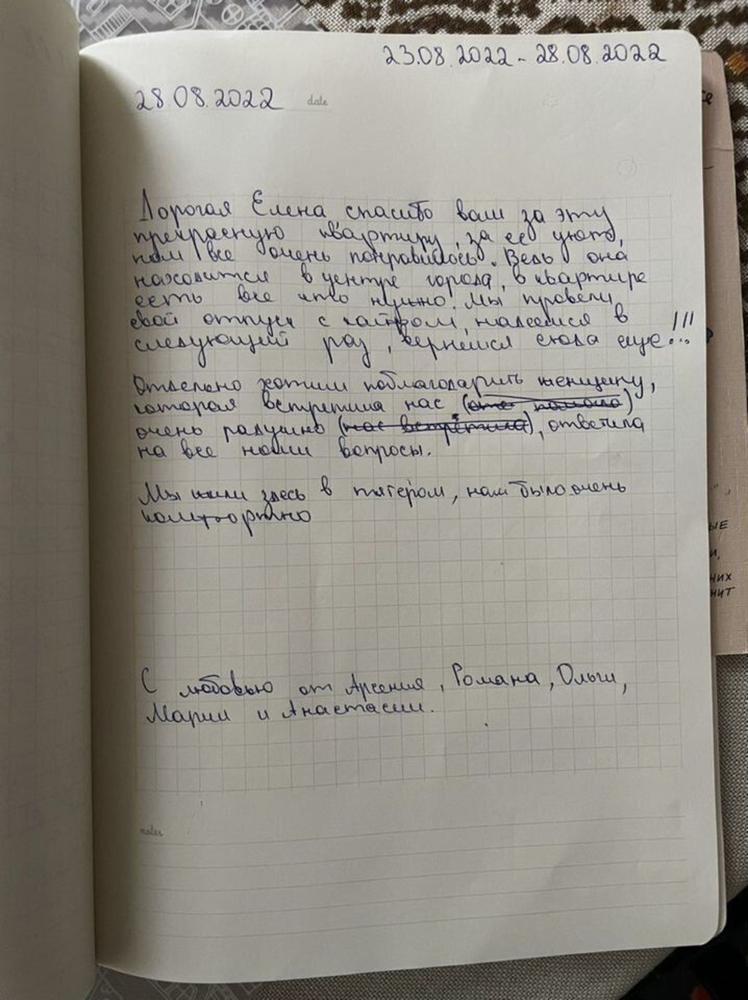 23.08.2022 - 28.08.2022
28.08.2022 date
Дорогая Елена спасибо вам за эту
прекрасную квартиру, за её уют,
нам все очень понравилось. Ведь она
находится в центре города, в квартире
есть все что нужно. Мы провели
свой отпуск с кайфом, надеемся в
следующий раз, вернемся сюда еще!!!
Отдельно хотим поблагодарить женщину,
которая встретила нас (
очень радушно (нас встретила), ответила
на все наши вопросы.
Мы жили здесь в пятером, нам было очень
комфортно
С любовью от Арсения, Романа, Ольги,
Марии и Анастасии.
notes